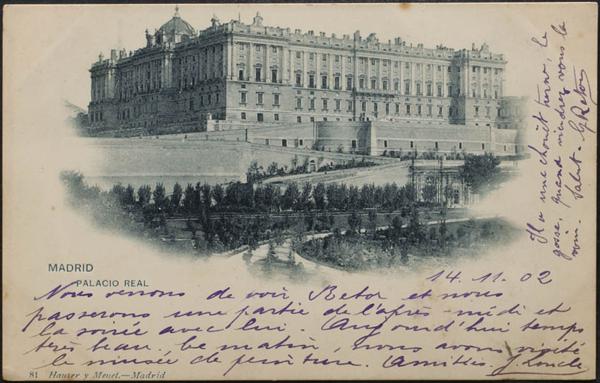 MADRID
PALACIO REAL
14.11.02
Nous venons de voir Retor et nous
passerons une partie de l'après-midi et
la soirée avec lui. Aujourd'hui temps
très beau. Ce matin, nous avons visité
le musée de peinture. Amitiés. J.
81 Hauser y Menet.-Madrid
Il a une chouette, le
gosse, quand viendrez vous la
voir. Salut. G. Retor